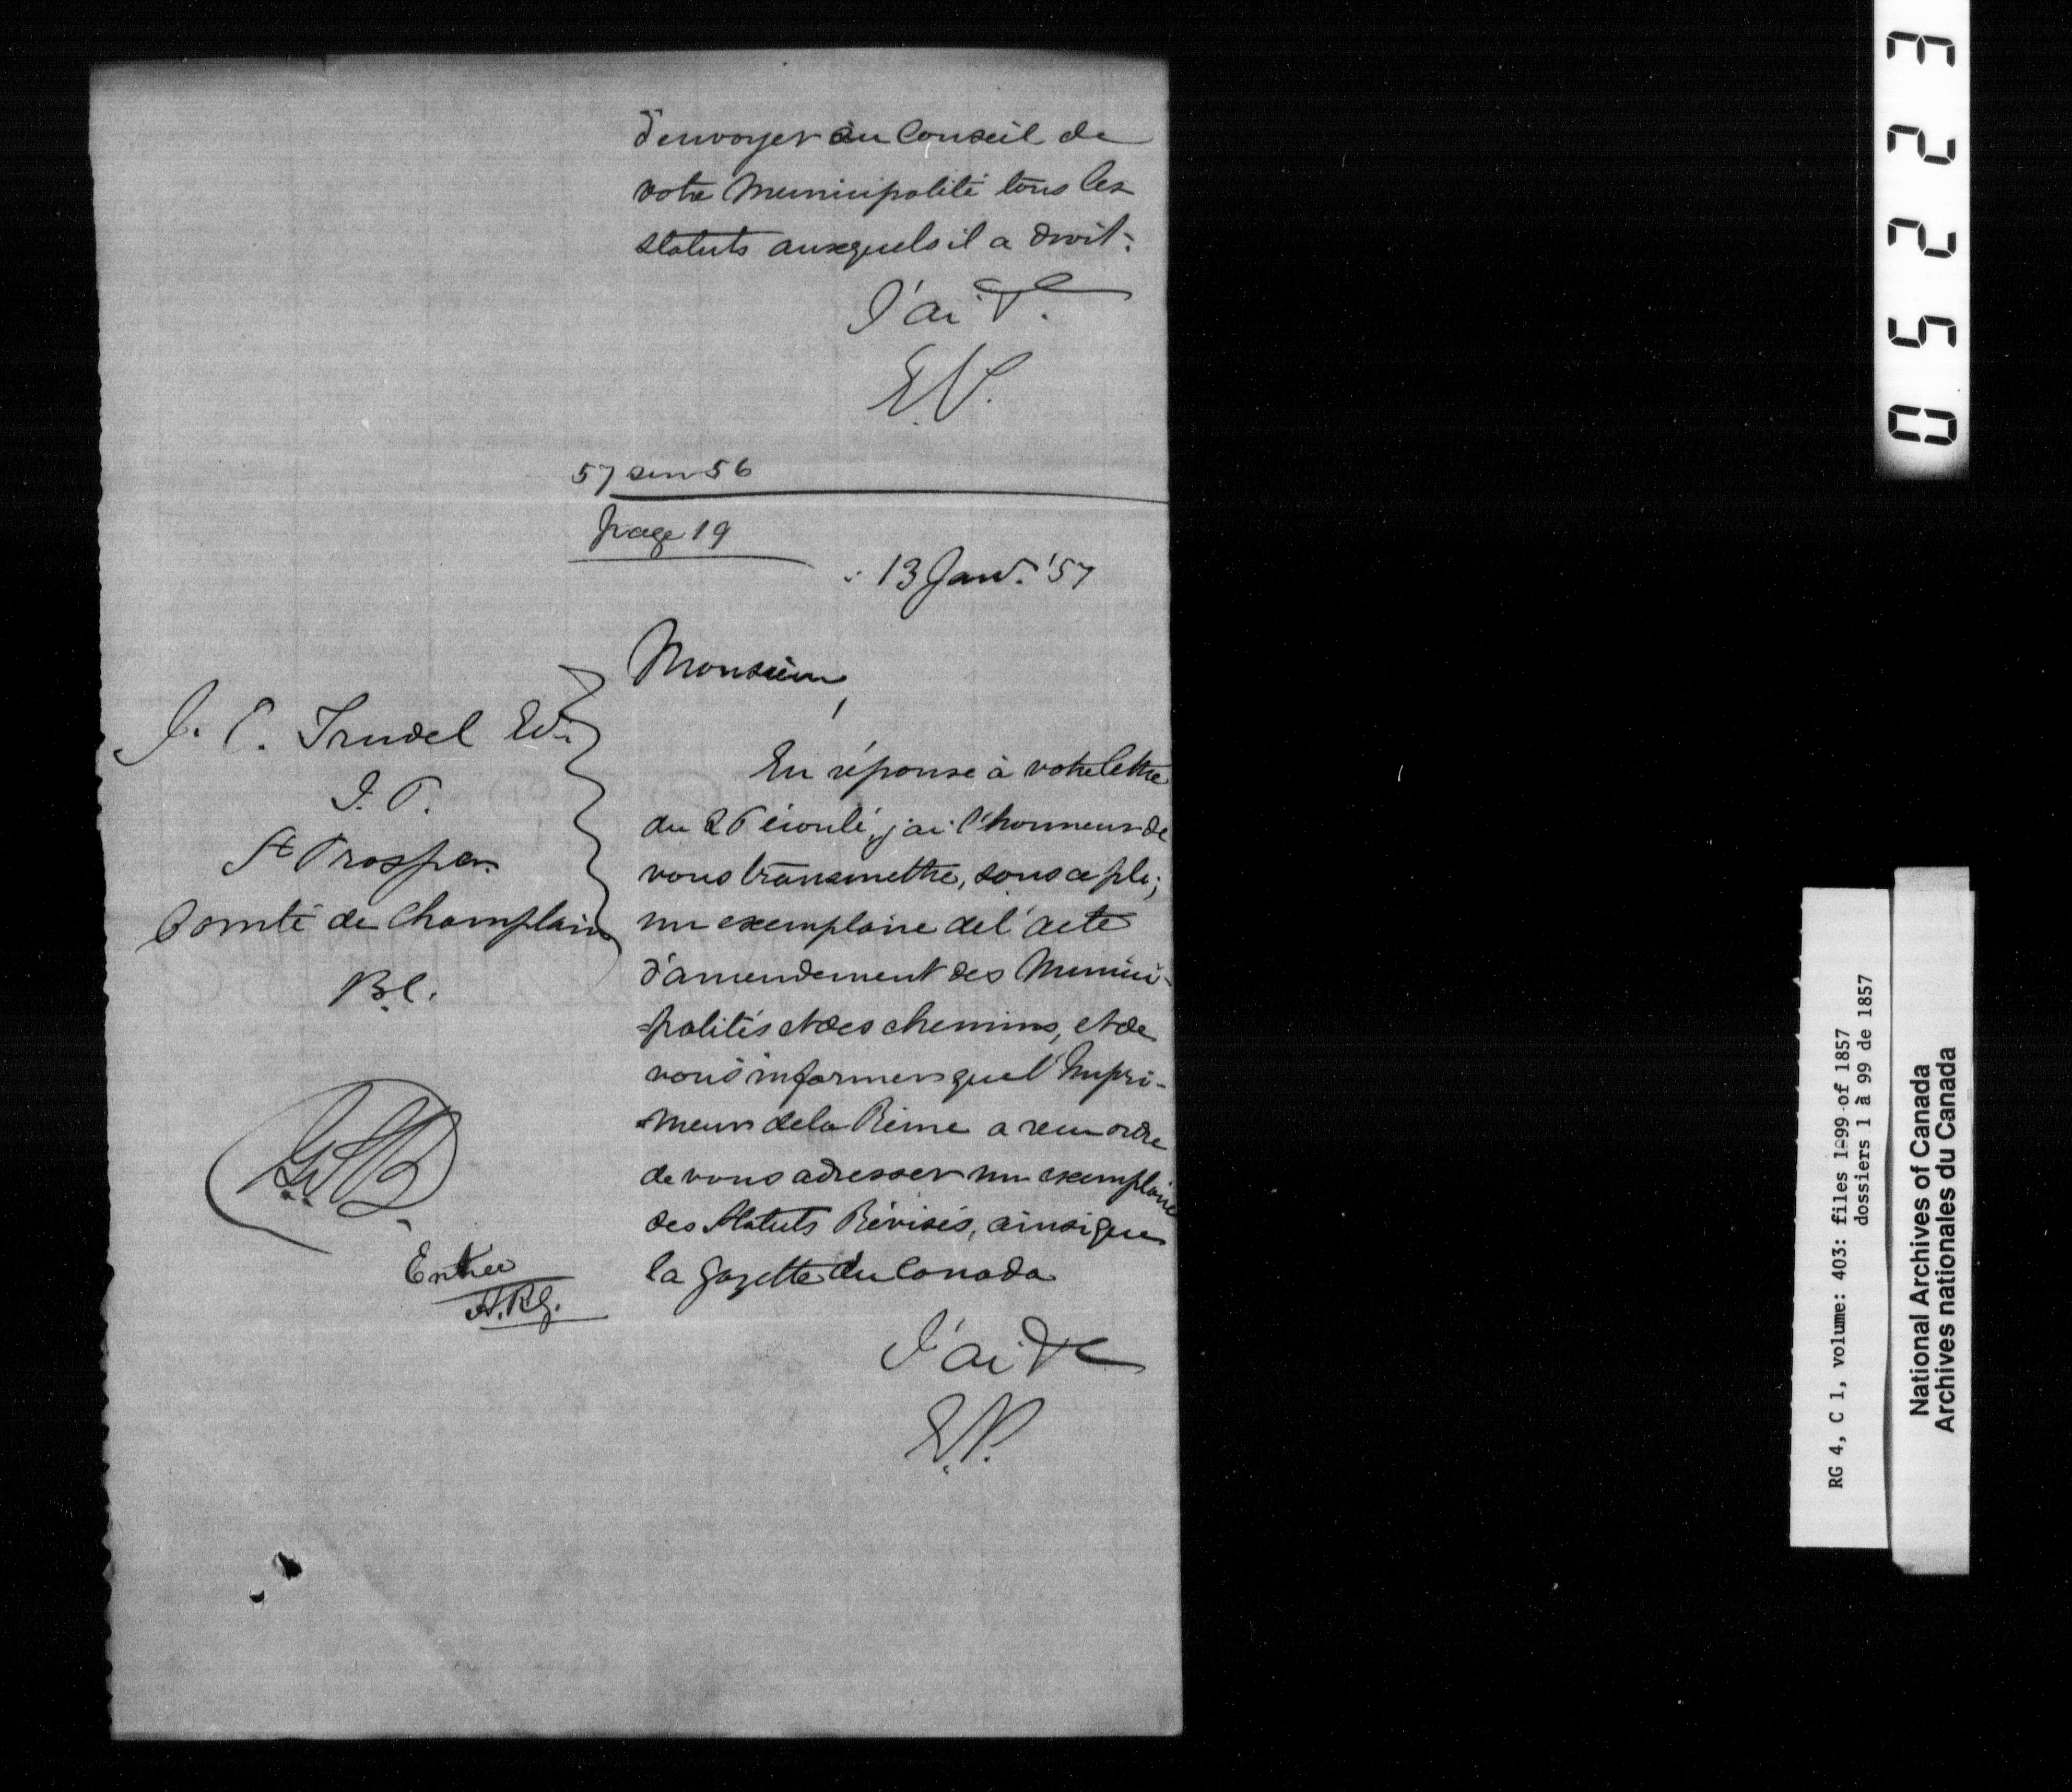 d'envoyer au Conseil de
votre Municipalité tous les
statuts auxquels il a droit.
J'ai &c.
E.P.
57 sur 56
page 19
13 Janv. '57
Monsieur,
J. C. Trudel Ecr.
J. P.
St Prosper
Comté de Champlain
B.C.
En réponse à votre lettre
du 26 écoulé, j'ai l'honneur de
vous transmettre, sous ce pli,
un exemplaire de l'acte
d'amendement des Munici-
=palités et des chemins, et de
vous informer que l'Impri-
=meur de la Reine a reçu ordre
de vous adresser un exemplaire
des Statuts Révisés, ainsi que
la Gazette du Canada
J'ai &c
E.P.
Entrée
RG 4, C 1, volume: 403: files 1-99 of 1857
dossiers 1 à 99 de 1857
National Archives of Canada
Archives nationales du Canada
0 5 2 2 3